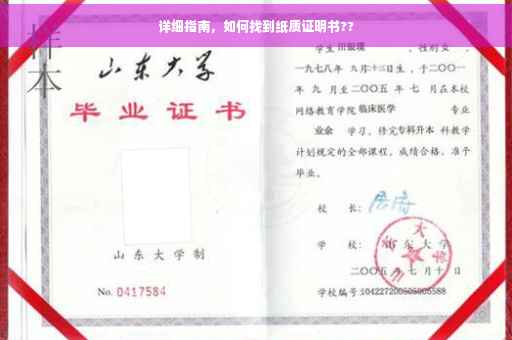 详细指南，如何找到纸质证明书??
样本
山东大学
毕业证书
山东大学制
No. 0417584
学生 性别女，
一九七八年 九月十三日生，于二〇〇一
年 九 月至二〇〇五 年 七 月在本校
网络教育学院 临床医学 专业
业余 学习，修完专科升本 科教学
计划规定的全部课程，成绩合格，准予
毕业。
校 长：
学 校： 山东大学
二〇〇五 年 七 月 十 日
学校编号: